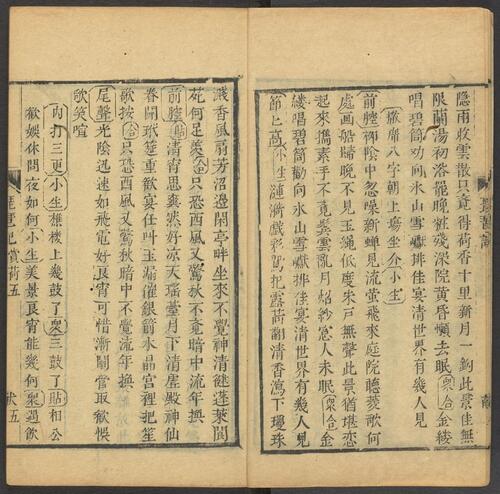 隱雨收雲散只覺得荷香十里新月一鈎此景佳無
限蘭湯初浴罷晚粧殘深院黃昏懶去眠衆合金縷
唱碧筒勸向氷山雪巘排佳宴清世界有幾人見
撒席八字朝上場坐介小生
前腔柳陰中忽噪新蟬見流螢飛來庭院聽菱歌何
處画船歸晚只見玉繩低度朱戸無聲此景猶堪恋
起來擕素手不覺鬢雲亂月炤紗窓人未眠衆合金
縷唱碧筒勸向氷山雪巘排佳宴清世界有幾人見
節上高小生漣漪戲彩鴛把露荷翻清香瀉下瓊珠
濺香風扇芳沼邊閑亭畔坐來不覺神清健蓬萊閬
苑何足羨合只恐西風又驚秋不覺暗中流年換
前腔貼清宵思爽然好凉天瑤臺月下清虛殿神仙
眷開玳筵重歡宴任叫玉漏催銀箭水晶宮裡把笙
歌按合只恐西風又驚秋暗中不覺流年換
尾聲光陰迅速如飛電好良宵可惜漸闌管取歡悞
歌笑喧
內打三更小生樵楼上幾鼓了衆三鼓了貼相公
歡娛休問夜如何小生美景良宵能幾何衆遇飲
琵琶記賞荷五